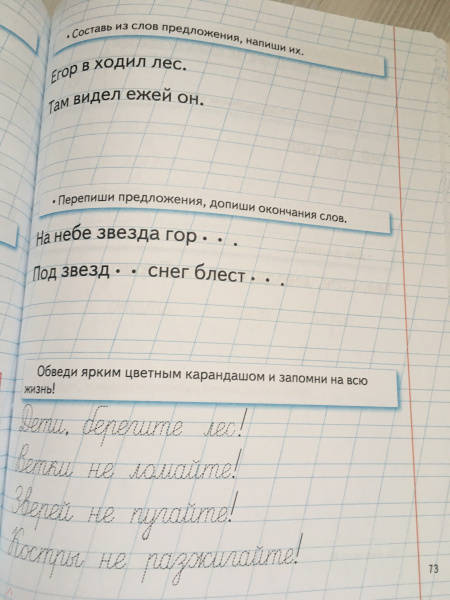 • Составь из слов предложения, напиши их.
Егор в ходил лес.
Там видел ежей он.
• Перепиши предложения, допиши окончания слов.
На небе звезда гор . . .
Под звезд . . снег блест . . .
Обведи ярким цветным карандашом и запомни на всю
жизнь!
Дети, берегите лес!
Ветки не ломайте!
Зверей не пугайте!
Костры не разжигайте!
73